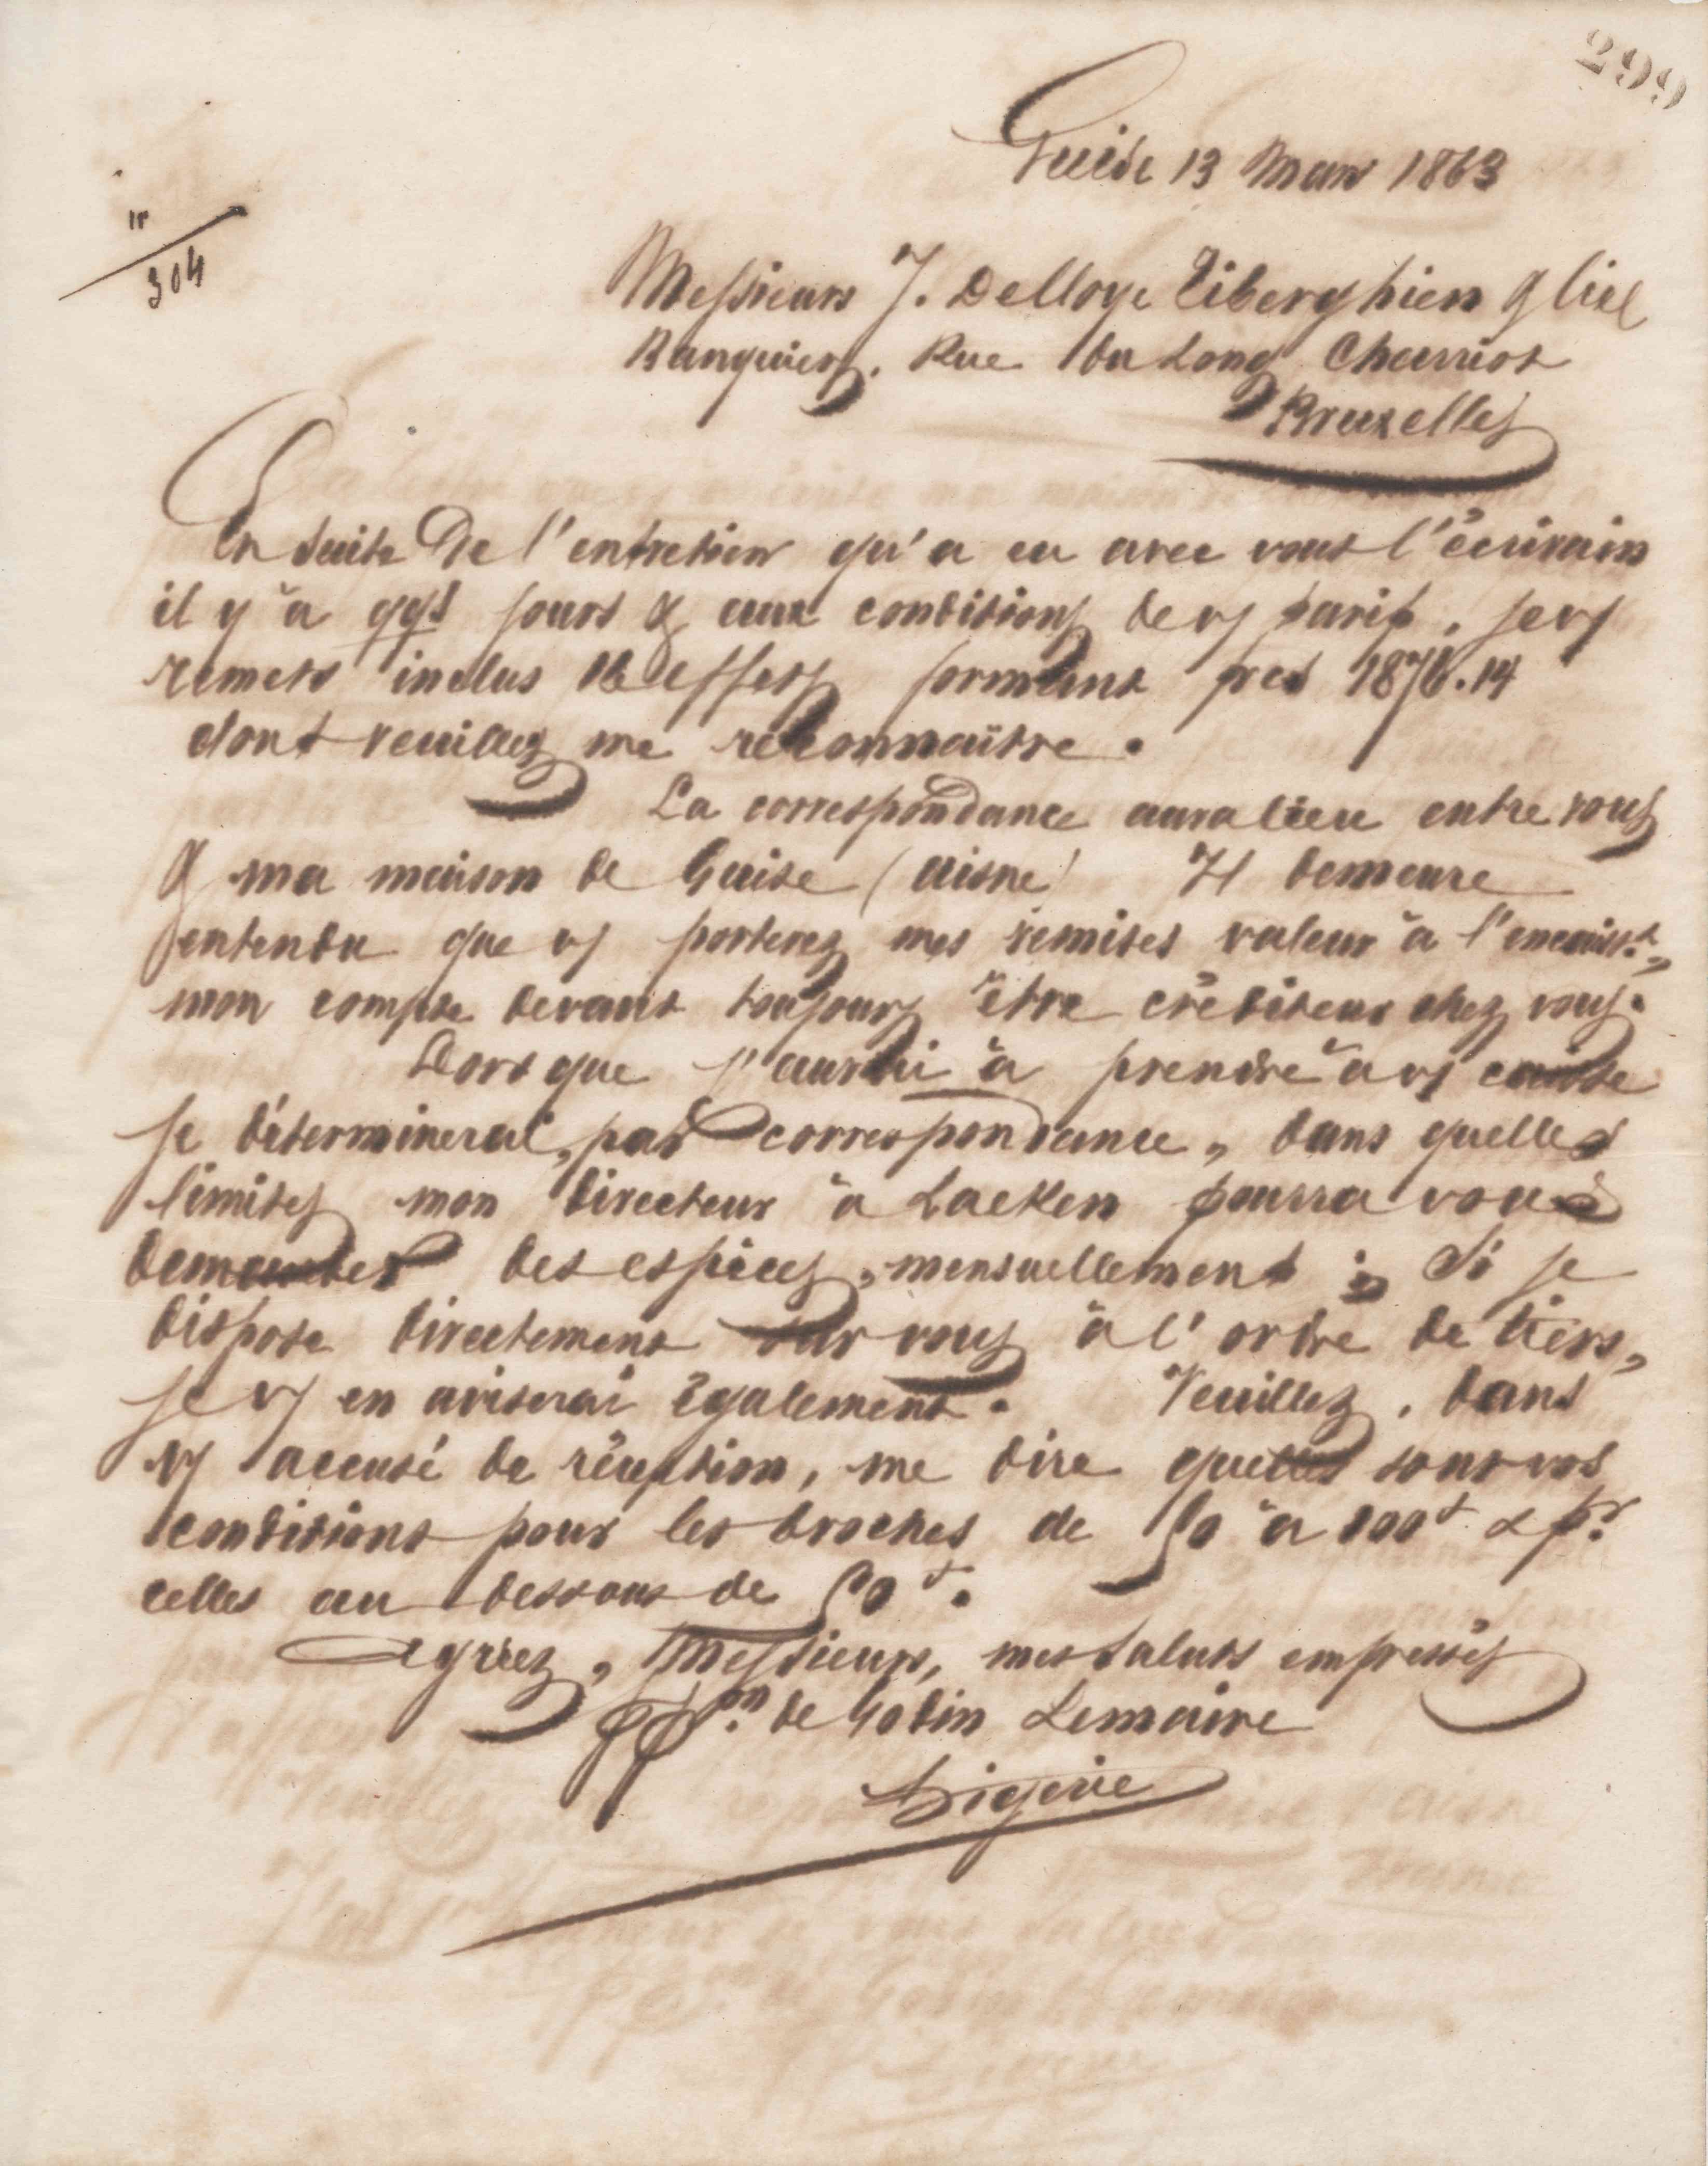 299
Guise 13 Mars 1863
1r
304
Messieurs J. Delloye Tiberghien & Cie
Banquiers. Rue du Long Charriot
Bruxelles
En suite de l'entretien qu'a eu avec vous l'écrivain
il y a qqs jours & aux conditions de vs tarifs, je vs
remets inclus effets formant frcs 1876.14
dont veuillez me reconnaître.
La correspondance aura lieu entre vous
& ma maison de Guise (aisne) Il demeure
entendu que vs porterez mes remises valeur à l'encaisst,
mon compte devant toujours être créditeur chez vous.
Lorsque j'aurai à prendre à vs caisse
je déterminerai, par correspondance, dans quelles
limites mon directeur à Laeken pourra vous
demander des espèces, mensuellement ; Si je
dispose directement sur vous à l'ordre de tiers,
je vs en aviserai également. Veuillez, dans
vs accusé de réception, me dire quelles sont vos
conditions pour les broches de 50 à 100f & pr
celles au dessous de 50f.
Agréez, Messieurs, mes saluts empressés
ppon de Godin Lemaire